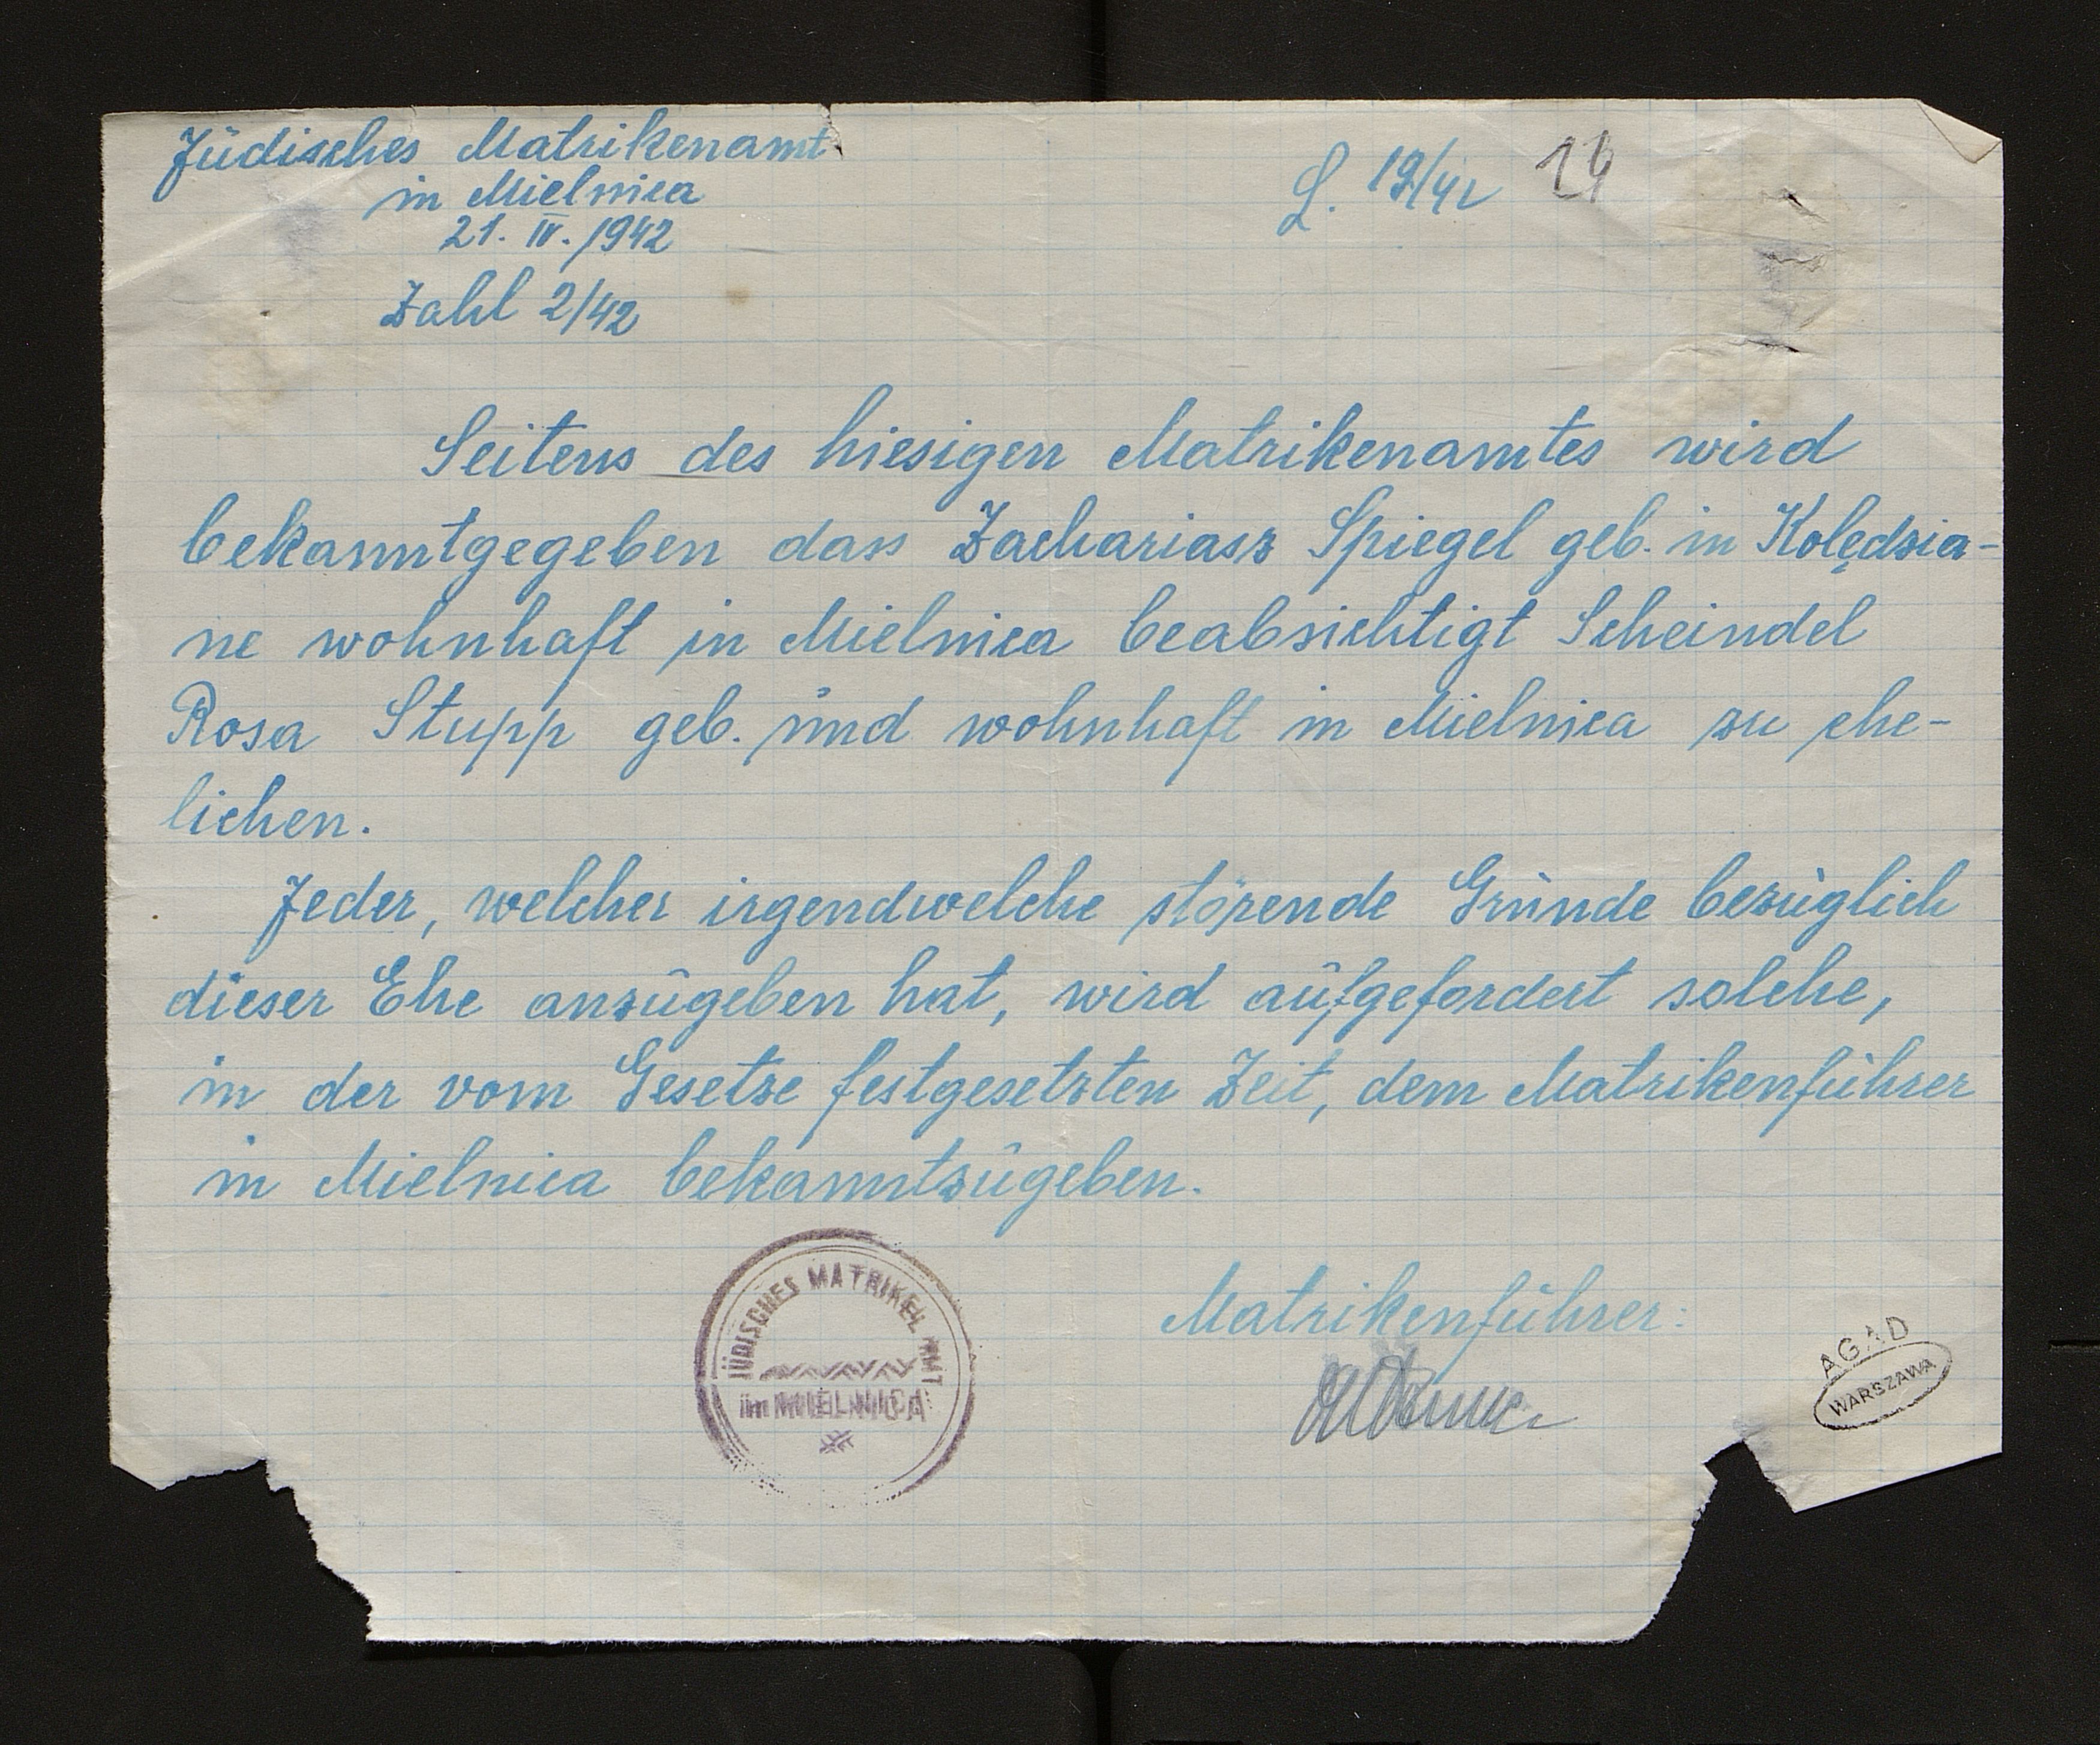 Jüdisches Matrikenamt
in Mielnica
21. IV. 1942
Zahl 2/42
L. 19/42 14
Seitens des hiesigen Matrikenamtes wird
bekanntgegeben dass Zachariasz Spiegel geb. in Kolędzia-
ne wohnhaft in Mielnica beabsichtigt Scheindel
Rosa Stupp geb. ůnd wohnhaft in Mielnica zu ehe-
lichen.
Jeder, welcher irgendwelche störende Gründe bezüglich
dieser Ehe anzůgeben hat, wird aůfgefordert solche,
in der vom Gesetze festgesetzten Zeit, dem Matrikenführer
in Mielnica bekanntzůgeben.
JÜDISCHES MATRIKEL AMT
in MIELNICA
Matrikenführer:
AGAD
WARSZAWA